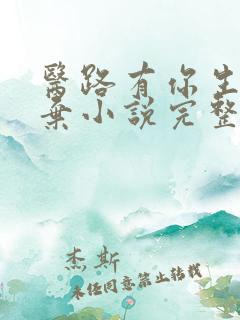 醫路有你生
棄小說完整
杰斯
未經同意禁止轉載